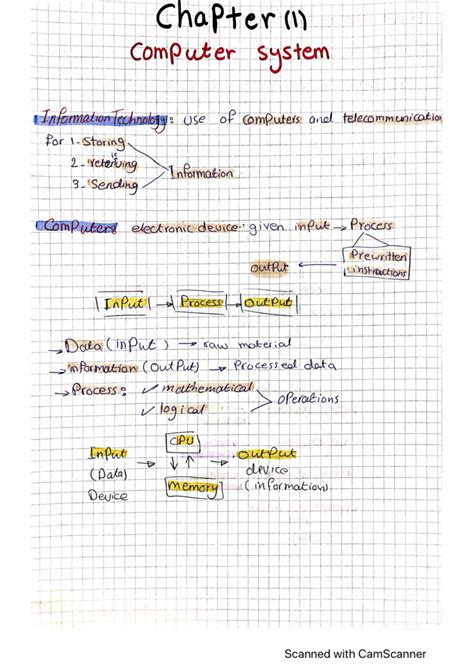 Chapter (1)
Computer system
Information Technology: use of computers and telecommunication
for 1- Storing
2- retreiving
3- Sending
Information
Computer: electronic device given input → Process
Prewritten
instructions
output ←
Input → Process → Output
→ Data (input) → raw material
→ information (output) → Processed data
→ Process: ✓ mathematical
✓ logical
operations
Input
(Data)
Device
→ CPU
↓↑
memory
→ output
device
(information)
Scanned with CamScanner